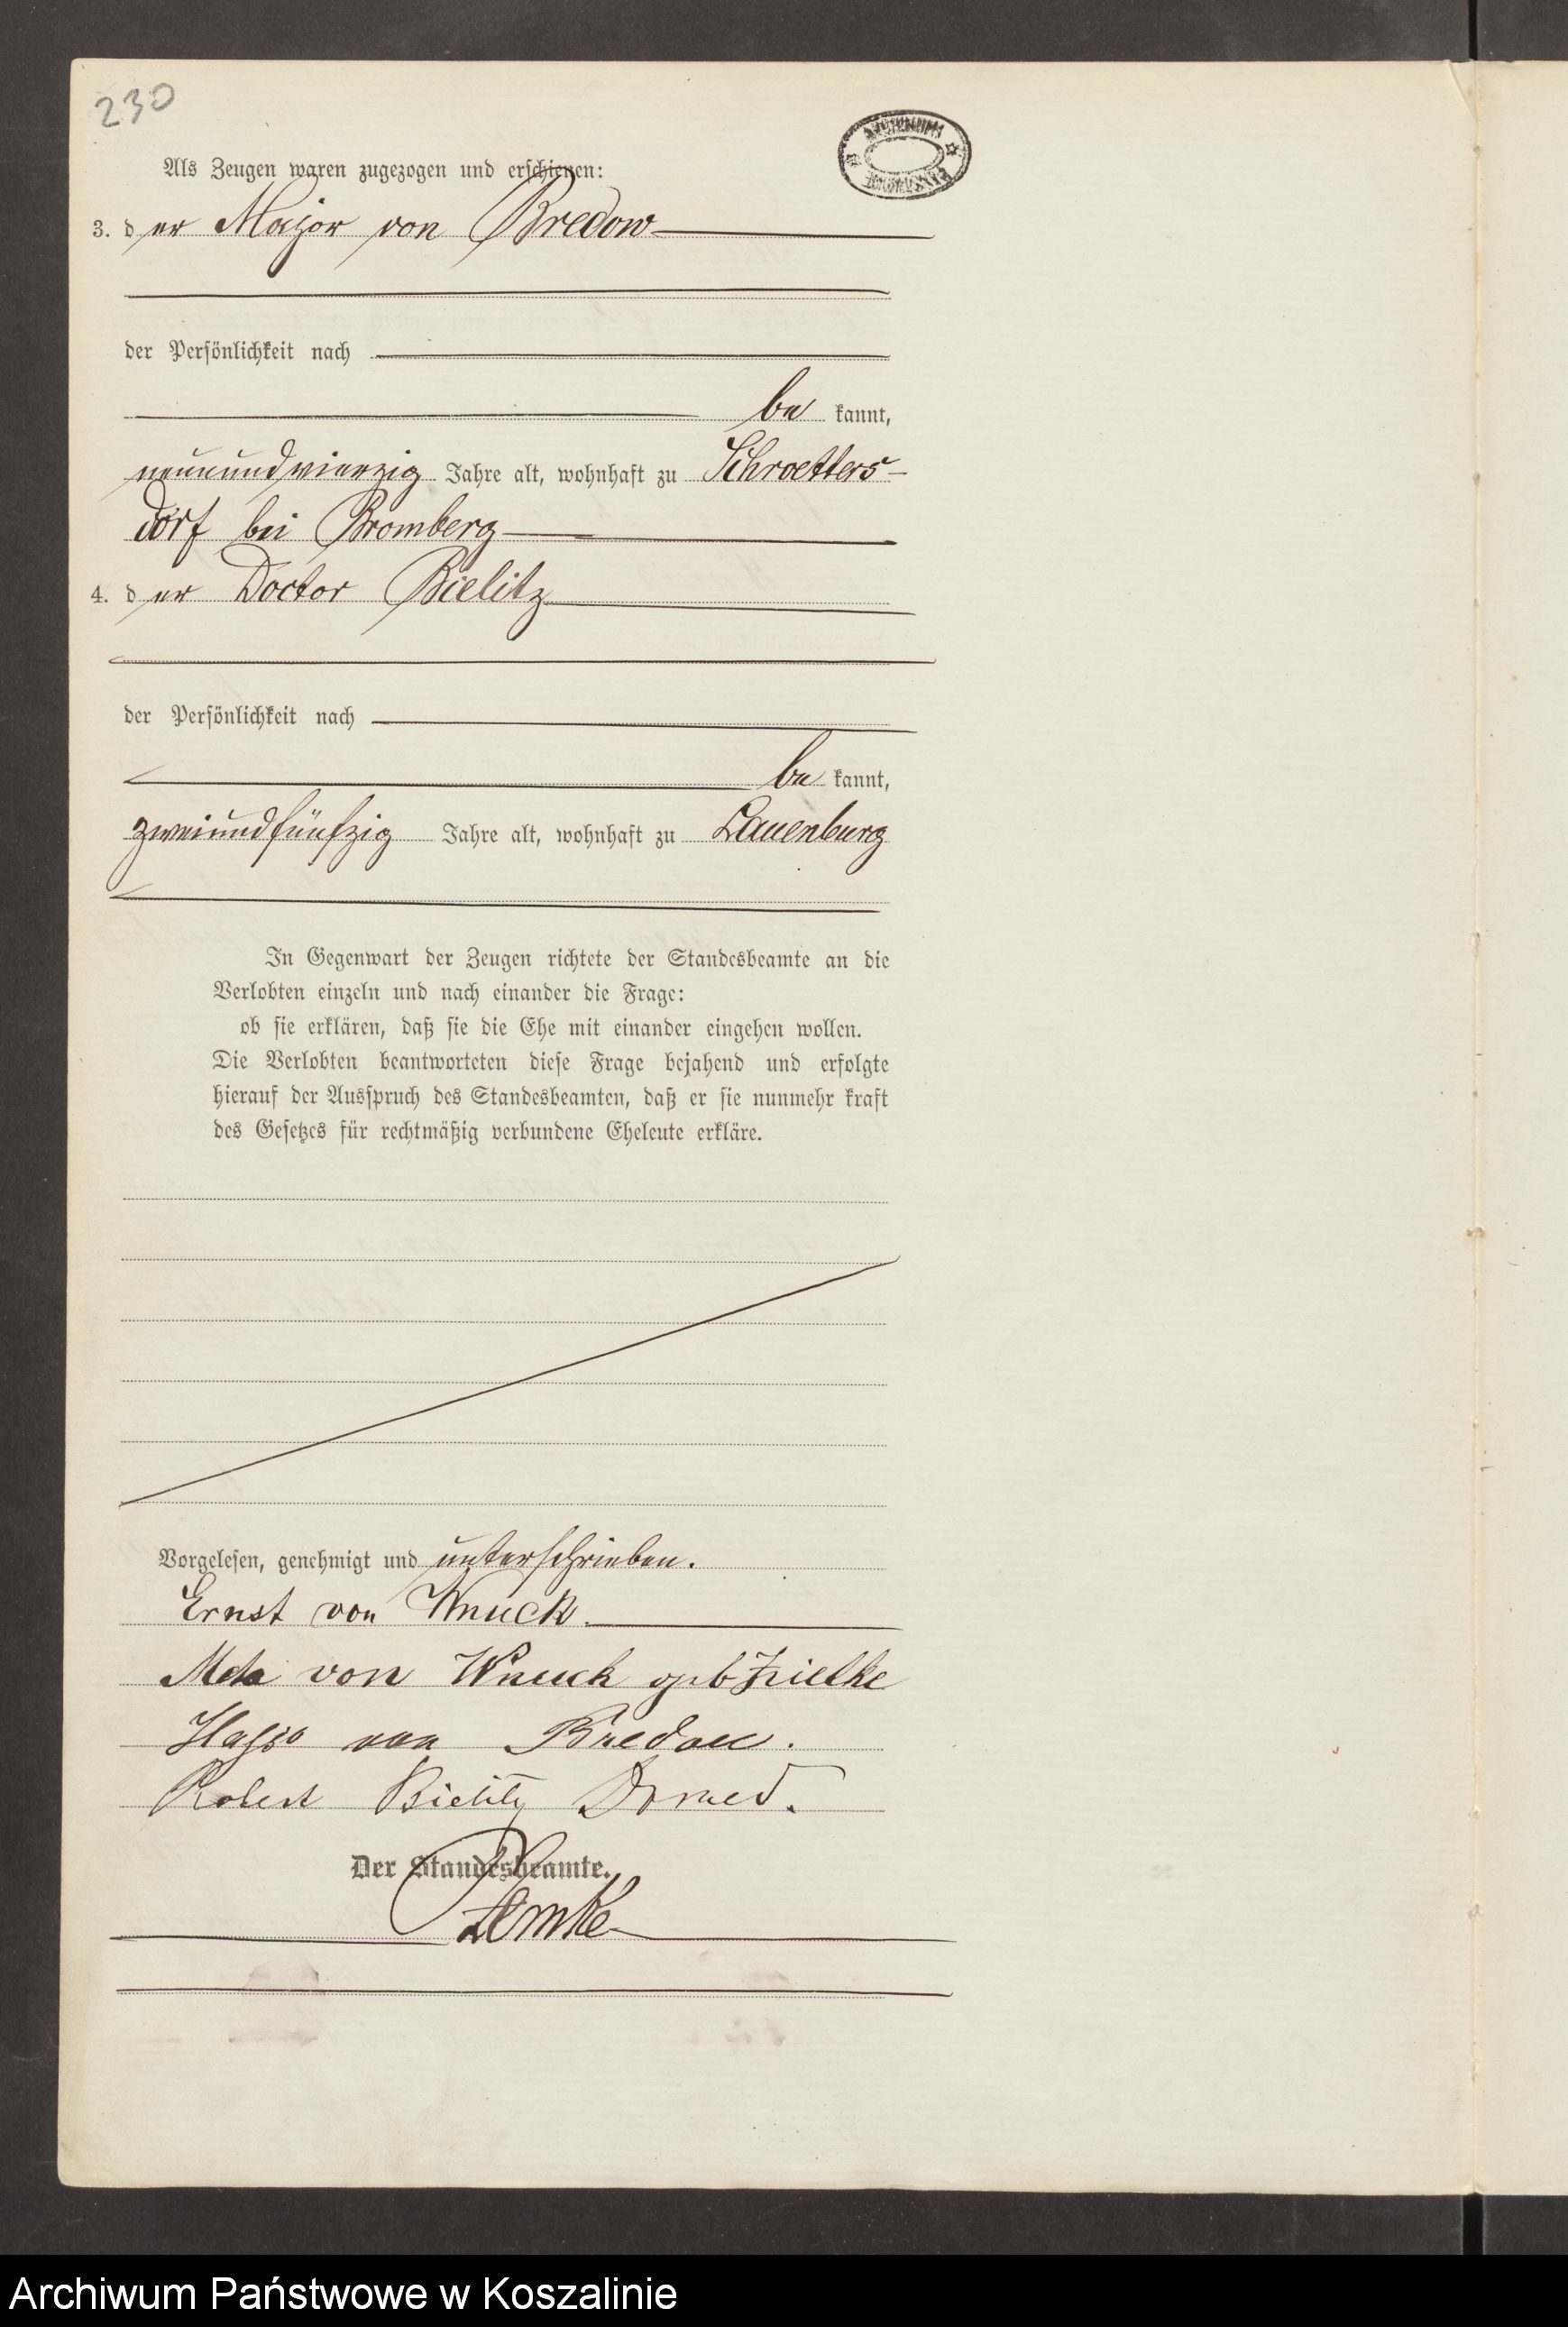 230
Als Zeugen waren zugezogen und erschienen:
3. der Major von Bredow
der Persönlichkeit nach
be kannt,
neunundvierzig Jahre alt, wohnhaft zu Schroetters-
dorf bei Bromberg
4. der Doctor Bielitz
der Persönlichkeit nach
be kannt,
zweiundfünfzig Jahre alt, wohnhaft zu Lauenburg
In Gegenwart der Zeugen richtete der Standesbeamte an die
Verlobten einzeln und nach einander die Frage:
ob sie erklären, daß sie die Ehe mit einander eingehen wollen.
Die Verlobten beantworteten diese Frage bejahend und erfolgte
hierauf der Ausspruch des Standesbeamten, daß er sie nunmehr kraft
des Gesetzes für rechtmäßig verbundene Eheleute erkläre.
Vorgelesen, genehmigt und unterschrieben.
Ernst von Wnuck.
Meta von Wnuck geb Zielke
Hasso von Bredow.
Robert Bielitz Dr med.
Der Standesbeamte.
Archiwum Państwowe w Koszalinie